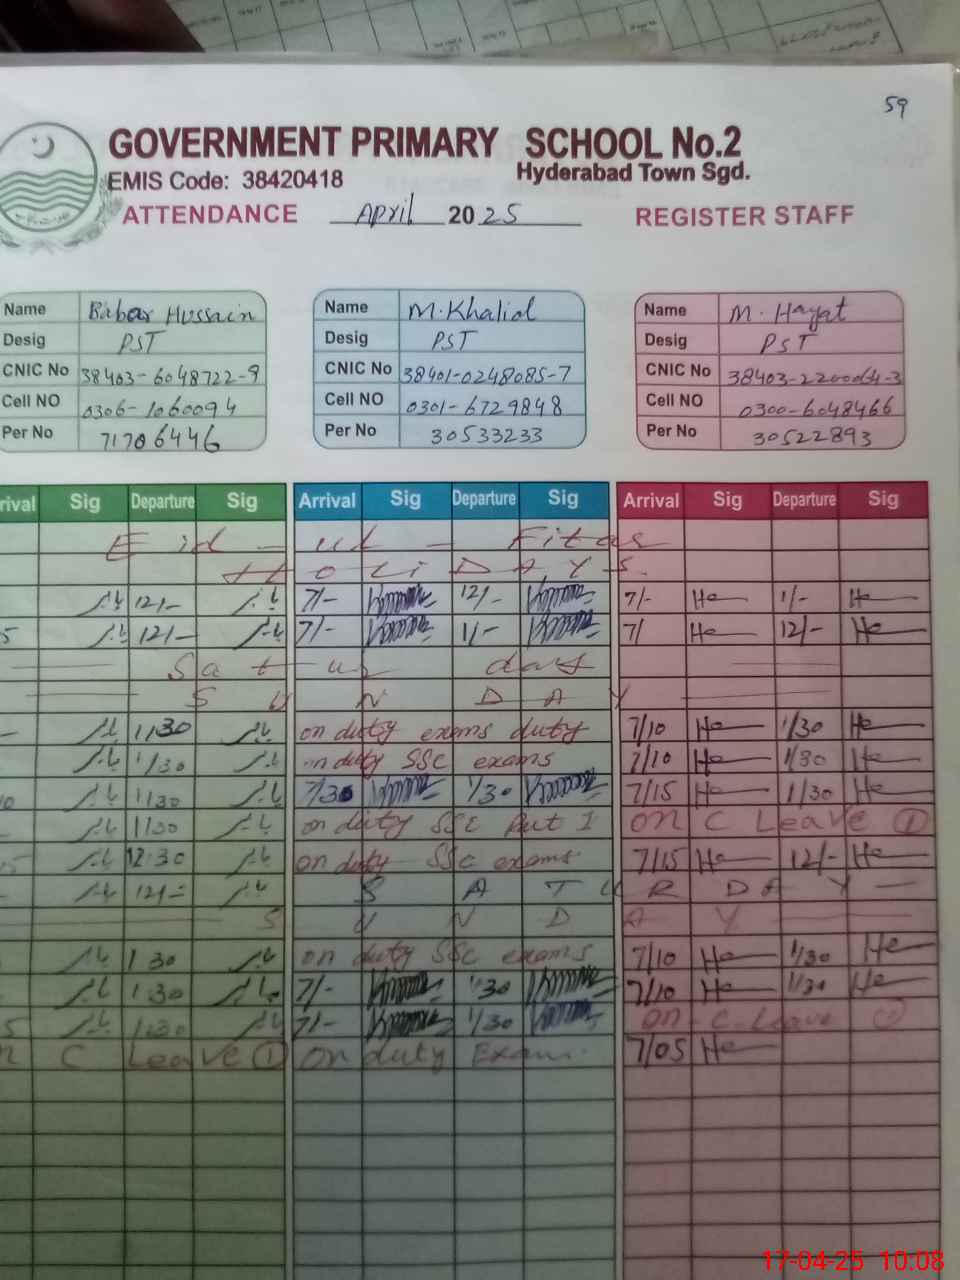 59
GOVERNMENT PRIMARY SCHOOL No.2
EMIS Code: 38420418 Hyderabad Town Sgd.
ATTENDANCE April 2025 REGISTER STAFF
Name Babar Hussain Name M. Khalid Name M. Hayat
Desig PST Desig PST Desig PST
CNIC No 38403-6048722-9 CNIC No 38401-0248085-7 CNIC No
Cell NO 0306-1060094 Cell NO 0301-6729848 Cell NO 0300-6048466
Per No 71706446 Per No 30533233 Per No 30522893
rival Sig Departure Sig Arrival Sig Departure Sig Arrival Sig Departure Sig
Eid - ul - Fitar
HoliDAYS.
12/- 7/- 12/- 7/- He 1/- He
5 12/- 7/- 1/- 7/ He 12/- He
Satur days
SUNDAY
11/30 on duty exams duty 7/10 He 1/30 He
1/30 on duty SSC exams 7/10 He 1/30 He
10 1/30 7/30 1/30 7/15 He 1/30 He
1/30 on duty SSC Part I on C Leave ①
12:30 on duty SSC exams 7/15 He 12/- He
12/- SATURDAY
SUNDAY
1 30 on duty SSC exams 7/10 He 1/30 He
1:30 7/- 1/30 7/10 He 1/30 He
5 1:30 7/- 1/30 on C Leave
n C Leave ① on duty Exam. 7/05 He
17-04-25 10:08